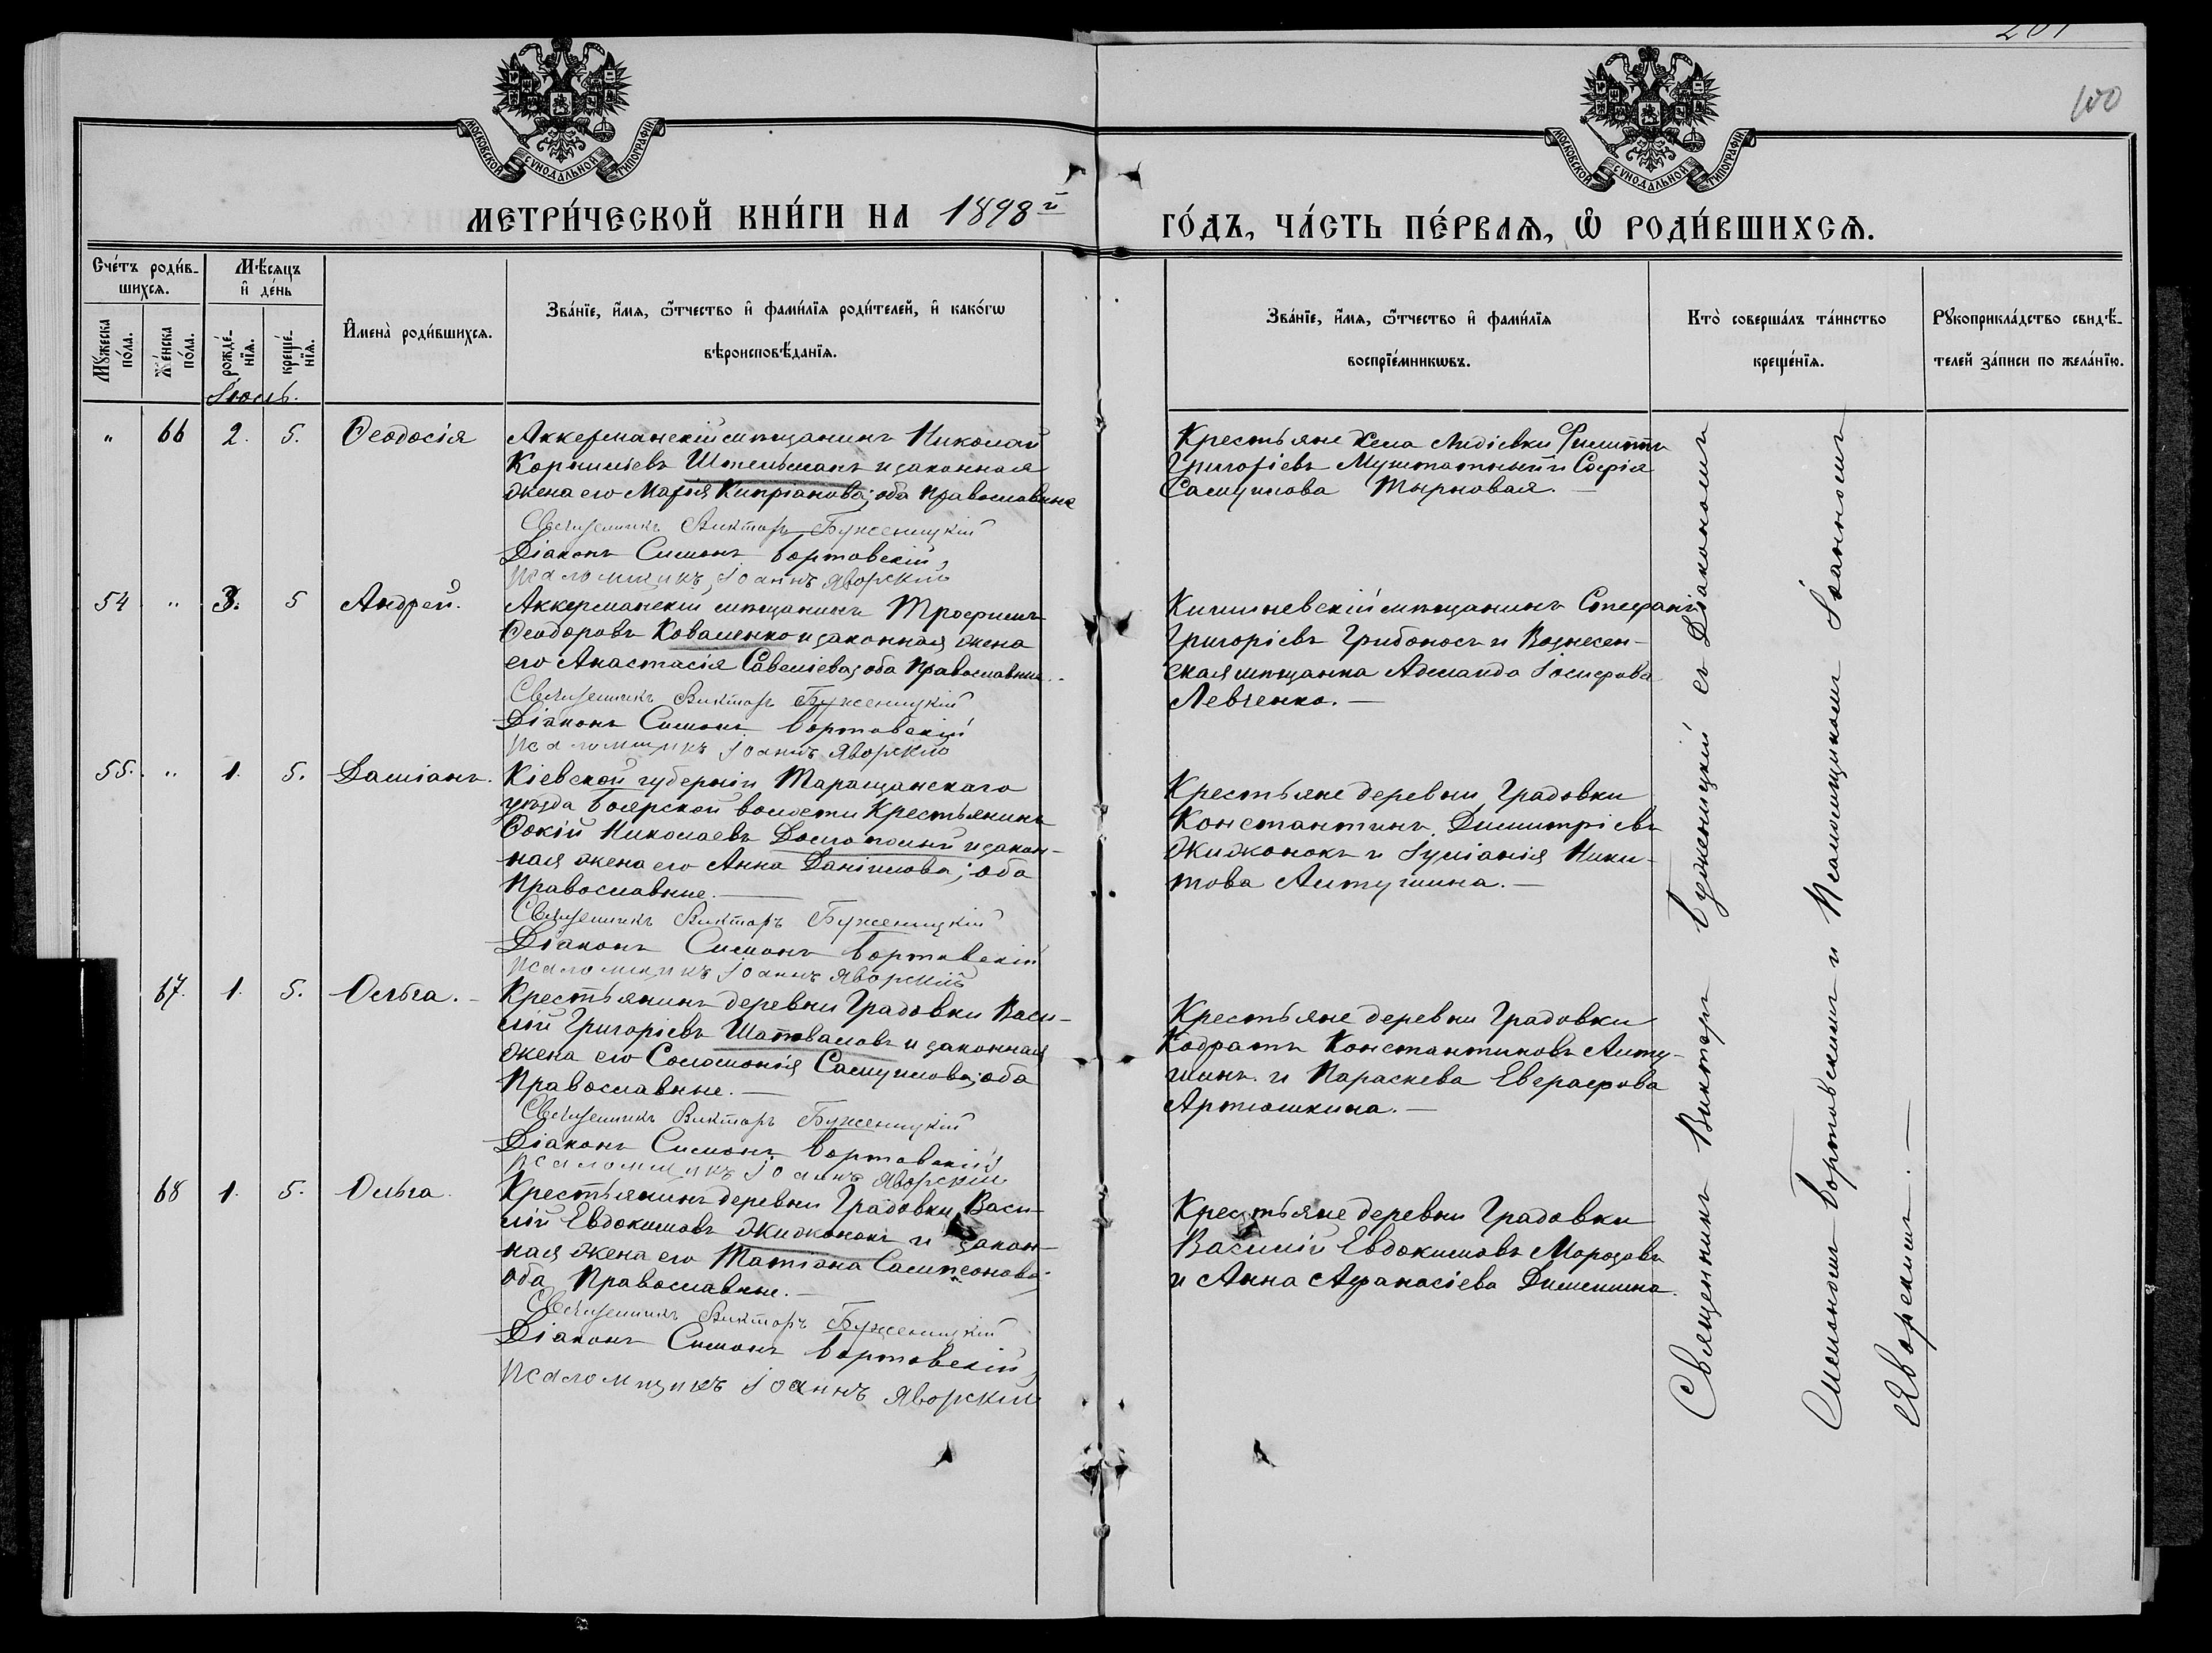 201
100
МОСКОВСКОЙ СѴНОДАЛЬНОЙ ТИПОГРАФІИ
МОСКОВСКОЙ СѴНОДАЛЬНОЙ ТИПОГРАФІИ
МЕТРИ́ЧЕСКОЙ КНИ́ГИ НА 1898й
ГО́ДЪ, ЧА́СТЬ ПЕ́РВАѦ, Ѡ҆ РОДИ́ВШИХСѦ.
Сче́тъ роди́в-
шихсѧ.
Мꙋ́жеска по́ла.
Же́нска по́ла.
Мѣ́сѧцъ
и҆ де́нь
рожде́-нїѧ.
креще́-нїѧ.
И҆мена̀ роди́вшихсѧ.
Зва́нїе, и҆́мѧ, ѻ҆́тчество и҆ фами́лїѧ роди́телей, и҆ како́гѡ
вѣроисповѣ́данїѧ.
Зва́нїе, и҆́мѧ, ѻ҆́тчество и҆ фами́лїѧ
воспрїе́мникѡвъ.
Кто̀ соверша́лъ та́инство
креще́нїѧ.
Рꙋкоприкла́дство свидѣ́-
телей за́писи по жела́нїю.
Іюль.
" 66 2. 5. Ѳеодосія
Аккерманскій мѣщанинъ Николай
Корниліевъ Штельмахъ и законная
жена его Марія Кипріанова; оба Православные
Священникъ Викторъ Бужениცкій
Діаконъ Симонъ Бортовскій
Псаломщикъ Іоаннъ Яворскій
Крестьяне села Лидіевки Филиппъ
Григоріевъ Мунтатный и Софія
Самуилова Тырновая. —
54 " 3. 5 Андрей.
Аккерманскій мѣщанинъ Трофимъ
Ѳеодоровъ Коваленко и законная жена
его Анастасія Савеліева; оба Православные. —
Священникъ Викторъ Буженицкій
Діаконъ Симонъ Бортовскій
Псаломщикъ Іоаннъ Яворскій
Кишиневскій мѣщанинъ Стефанъ
Григоріевъ Грибоносъ и Вознесен-
ская мѣщанка Аделаида Іосифова
Левченко. —
55. " 1. 5. Даміанъ.
Кіевской губерніи Таращанскаго
уѣзда Боярской волости Крестьянинъ
Фокій Николаевъ и закон-
ная жена его Анна Даніилова; оба
Православные. —
Священникъ Викторъ Буженицкій
Діаконъ Симонъ Бортовскій
Псаломщикъ Іоаннъ Яворскій
Крестьяне деревни Градовки
Константинъ Димитріевъ
Жижонокъ и Іуліанія Ники-
това Антушина. —
67. 1. 5. Ольга. —
Крестьянинъ деревни Градовки Васи-
лій Григоріевъ Шаповаловъ и законная
жена его Соломонія Самуилова; оба
Православные. —
Священникъ Викторъ Буженицкій
Діаконъ Симонъ Бортовскій
Псаломщикъ Іоаннъ Яворскій
Крестьяне деревни Градовки
Кодратъ Константиновъ Анту-
шинъ и Параскева Евграфова
Артюшкина. —
68 1. 5. Ольга.
Крестьянинъ деревни Градовки Васи-
лій Евдокимовъ Жижонокъ и закон-
ная жена его Татіана Сампсонова;
оба Православные. —
Священникъ Викторъ Буженицкій
Діаконъ Симонъ Бортовскій
Псаломщикъ Іоаннъ Яворскій
Крестьяне деревни Градовки
Василій Евдокимовъ Морозовъ
и Анна Афанасіева
Священникъ Викторъ Буженицкій съ Діакономъ
Симономъ Бортовскимъ и Псаломщикомъ Іоанномъ
Яворскимъ. —